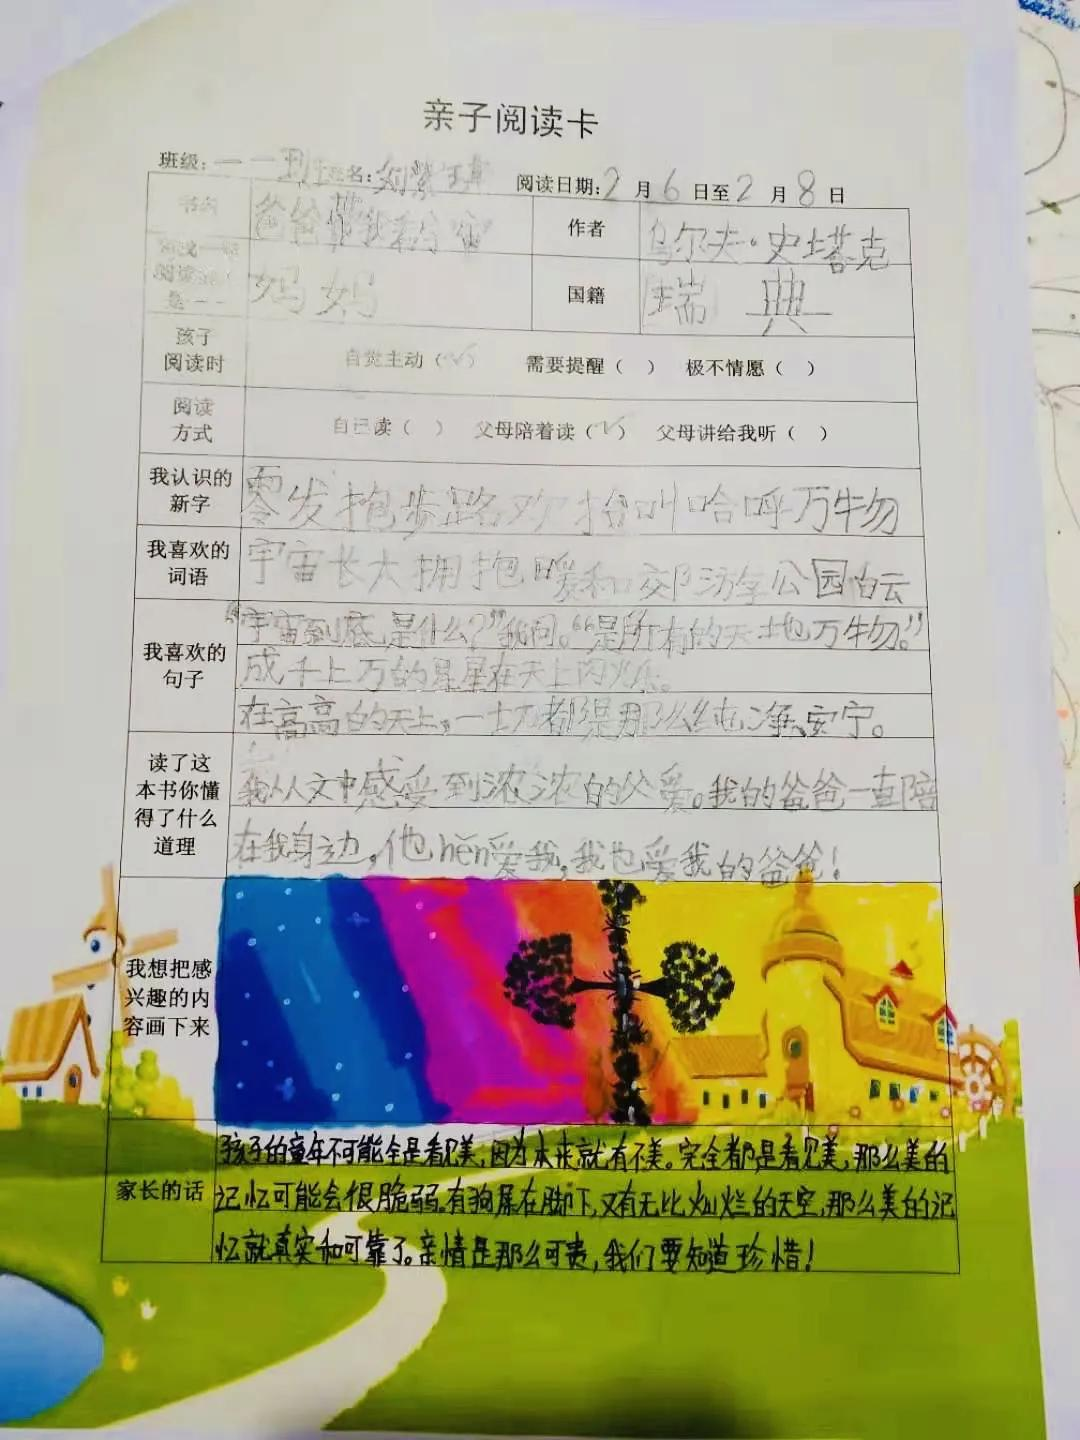 亲子阅读卡
班级: 一 一班 姓名: 刘紫 阅读日期: 2 月 6 日至 2 月 8 日
书名 爸爸带我看宇宙 作者 乌尔夫·史塔克
妈妈 国籍 瑞典
孩子
阅读时 自觉主动(✓) 需要提醒( ) 极不情愿( )
阅读
方式 自己读( ) 父母陪着读(✓) 父母讲给我听( )
我认识的
新字 零发抱步路欢抬叫哈呼万牛勿
我喜欢的
词语 宇宙长大拥抱暖和郊游学公园白云
我喜欢的
句子
“宇宙到底是什么?”我问。“是所有的天地万牛勿。”
成千上万的星星在天上闪烁。
在高高的天上,一切都是那么纯净、安宁。
读了这
本书你懂
得了什么
道理
我从文中感受到浓浓的父爱。我的爸爸一直陪
在我身边,他hěn爱我,我也爱我的爸爸!
我想把感
兴趣的内
容画下来
家长的话
孩子的童年不可能全是看见美,因为本来就有不美。完全都是看见美,那么美的
记忆可能会很脆弱。有狗屎在脚下,又有无比灿烂的天空,那么美的记
忆就真实和可靠了。亲情是那么可贵,我们要知道珍惜!